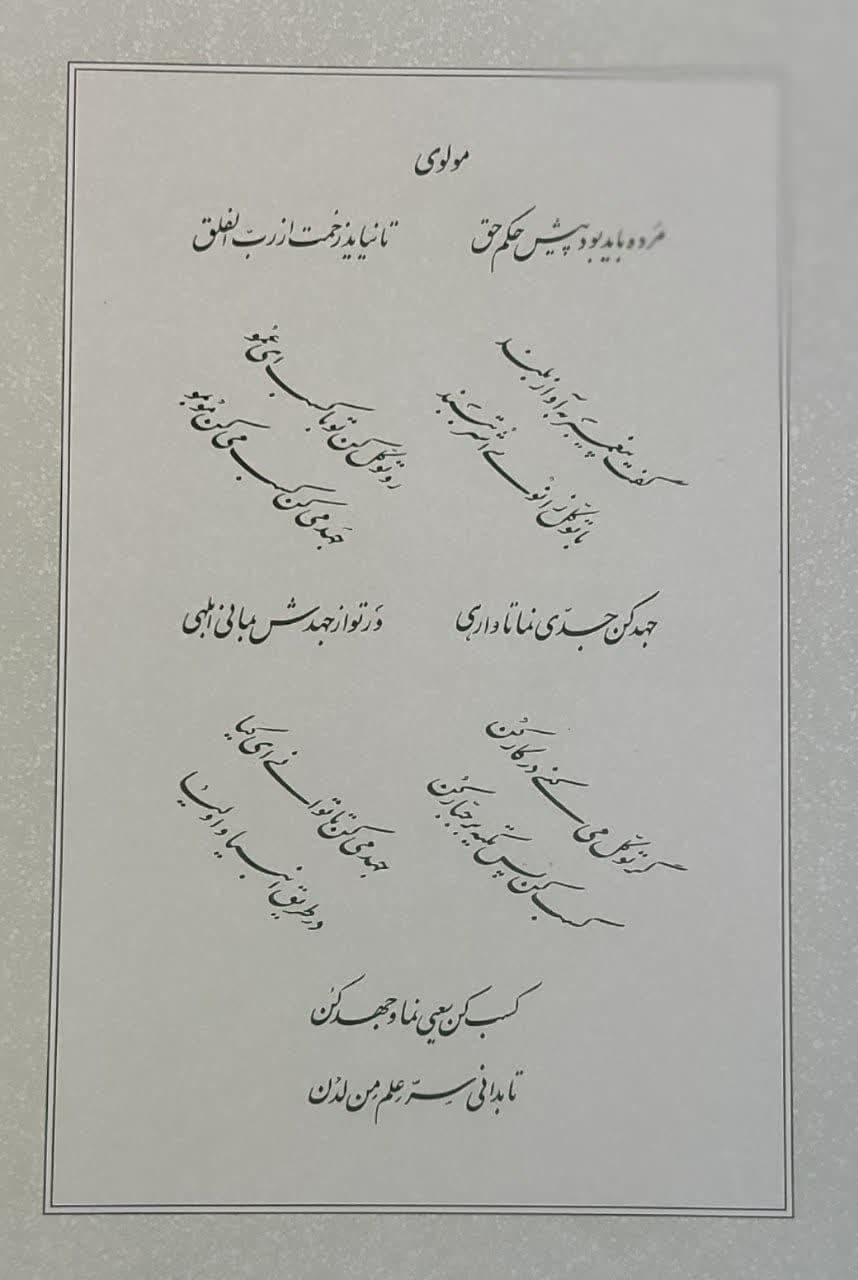 مولوی
مُرده باید بود پیش حکم حق تا نیاید زخمت از ربّ الفلق
گفت پیغمبر به آواز بلند
با توکّل زانوے اُشتر ببَند
رو توکّل کن تو با کسب ای عمو
جهد می کن کسب می کن مو بمو
جهد کن جدّی نما تا وارهی وَر تو از جهدش بمانی ابلهی
گر توکّل می کنے در کار کُن
کسب کن پس تکیه بر جبّار کُن
جهد می کن تا توانے ای کیا
در طریق انبیا و اولیا
کسب کن سعیی نما و جهد کُن
تا بدانی سِرّ عِلم مِن لدُن